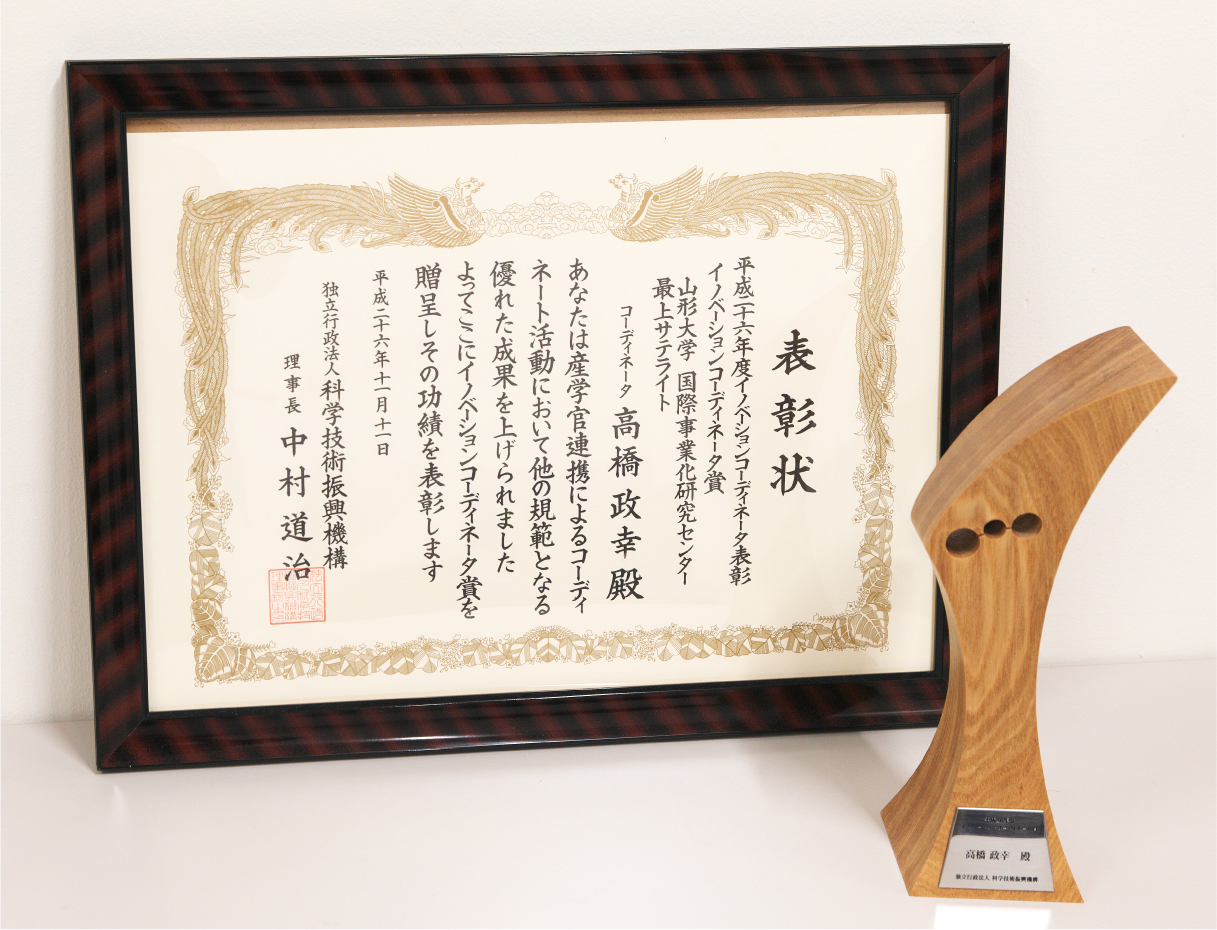 表彰状
平成二十六年度イノベーションコーディネータ表彰
イノベーションコーディネータ賞
山形大学 国際事業化研究センター
最上サテライト
コーディネータ 高橋政幸殿
あなたは産学官連携によるコーディ
ネート活動において他の規範となる
優れた成果を上げられました
よってここにイノベーションコーディネータ賞を
贈呈しその功績を表彰します
平成二十六年十一月十一日
独立行政法人科学技術振興機構
理事長 中村道治
高橋 政幸 殿
独立行政法人 科学技術振興機構